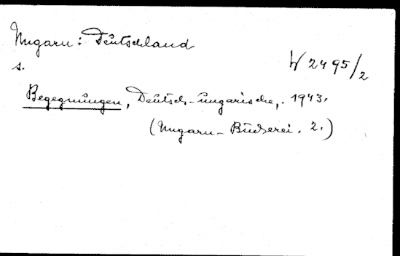 Ungarn: Deutschland
W 2495/2
s.
Begegnungen, Deutsch-ungarische,. 1943.
(Ungarn-Bücherei. 2.)